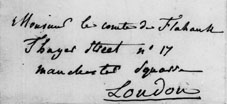 Monsieur le comte de Flahault
Thayer Street n° 17
manchester Square
London